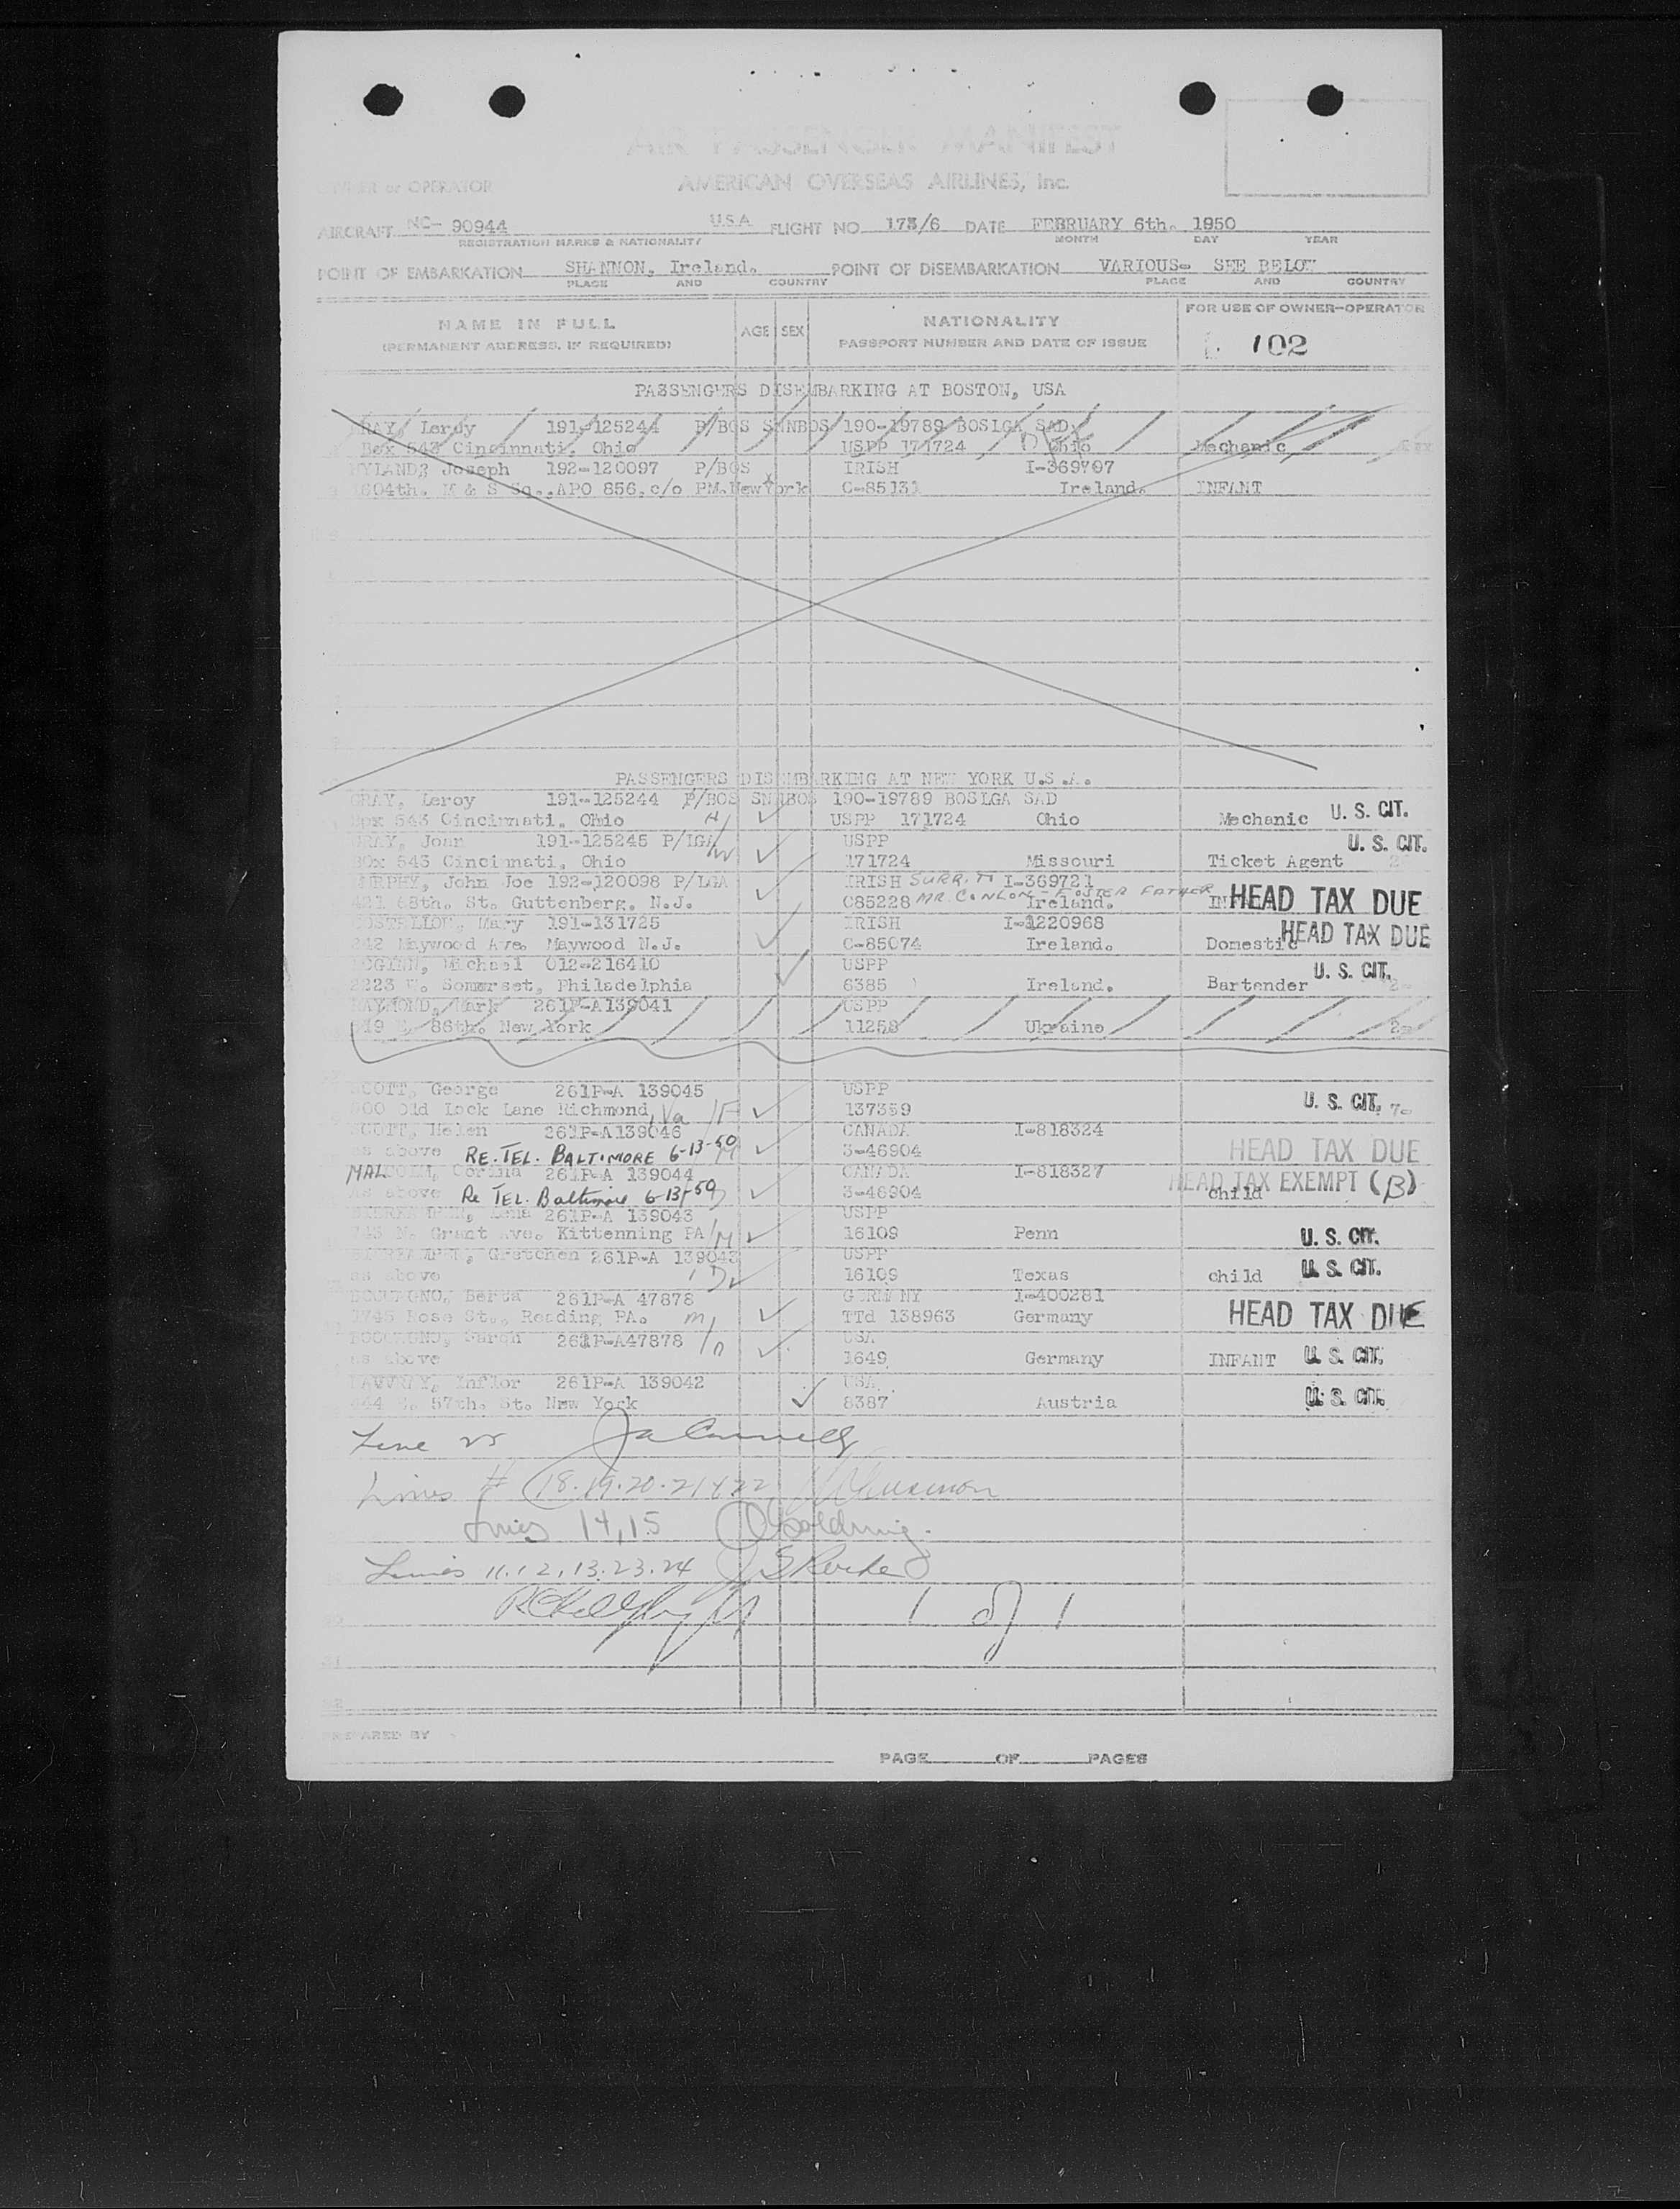 AIR PASSENGER MANIFEST
OWNER or OPERATOR AMERICAN OVERSEAS AIRLINES, Inc.
AIRCRAFT NC- 90944 USA FLIGHT NO 173/6 DATE FEBRUARY 6th. 1950
REGISTRATION MARKS & NATIONALITY MONTH DAY YEAR
POINT OF EMBARKATION SHANNON, Ireland. POINT OF DISEMBARKATION VARIOUS- SEE BELOW
PLACE AND COUNTRY PLACE AND COUNTRY
NAME IN FULL
(PERMANENT ADDRESS, IF REQUIRED)
AGE SEX
NATIONALITY
PASSPORT NUMBER AND DATE OF ISSUE
FOR USE OF OWNER-OPERATOR
102
PASSENGERS DISEMBARKING AT BOSTON, USA
GRAY, Leroy 191-125244 P/BOS SNNBOS 190-19789 BOSLGA SAD
Box 543 Cincinnati, Ohio USPP 171724 Ohio Mechanic
HYLAND, Joseph 192-120097 P/BOS IRISH I-369707
1604th. M & S Sq., APO 856, c/o PM. New York C-85131 Ireland. INFANT
PASSENGERS DISEMBARKING AT NEW YORK U.S.A.
GRAY, Leroy 191-125244 P/BOS SNNBOS 190-19789 BOSLGA SAD
Box 543 Cincinnati, Ohio H USPP 171724 Ohio Mechanic U. S. CIT.
GRAY, Joan 191-125245 P/LGA USPP U. S. CIT.
Box 543 Cincinnati, Ohio W 171724 Missouri Ticket Agent
MURPHY, John Joe 192-120098 P/LGA IRISH SURR. TO I-369721
421 68th. St. Guttenberg, N.J. C85228 MR. CONLON - FOSTER FATHER Ireland. HEAD TAX DUE
Mary 191-131725 IRISH I-1220968
242 Maywood Ave. Maywood N.J. C-85074 Ireland. Domestic HEAD TAX DUE
Michael 012-216410 USPP
2223 W. Somerset, Philadelphia 6385 Ireland. Bartender U. S. CIT.
RAYMOND, Mark 261P-A139041 USPP
86th. New York 11258 Ukraine
SCOTT, George 261P-A 139045 USPP
500 Old Lock Lane Richmond, Va F 137359 U. S. CIT. 7-
SCOTT, Helen 261P-A139046 CANADA I-818324
as above RE. TEL. BALTIMORE 6-13-50 M 3-46904 HEAD TAX DUE
MALCOLM, 261P-A 139044 CANADA I-818327
as above Re TEL. Baltimore 6-13-50 D 3-46904 child HEAD TAX EXEMPT (B)
261P-A 139043 USPP
N. Grant Ave. Kittenning PA M 16109 Penn U. S. CIT.
Gretchen 261P-A 139043 USPP
as above D 16109 Texas child U. S. CIT.
Berta 261P-A 47878 GERMANY I-400281
1745 Rose St., Reading PA. M TTd 138963 Germany HEAD TAX DUE
261P-A47878 USA
as above 1649 Germany INFANT U. S. CIT.
261P-A 139042 USA
444 E. 57th. St. New York 8387 Austria U. S. CIT.
Line 25
Lines # 18.19.20.21 & 22
Lines 14,15
Lines 11.12.13.23.24
1 of 1
PREPARED BY
PAGE OF PAGES